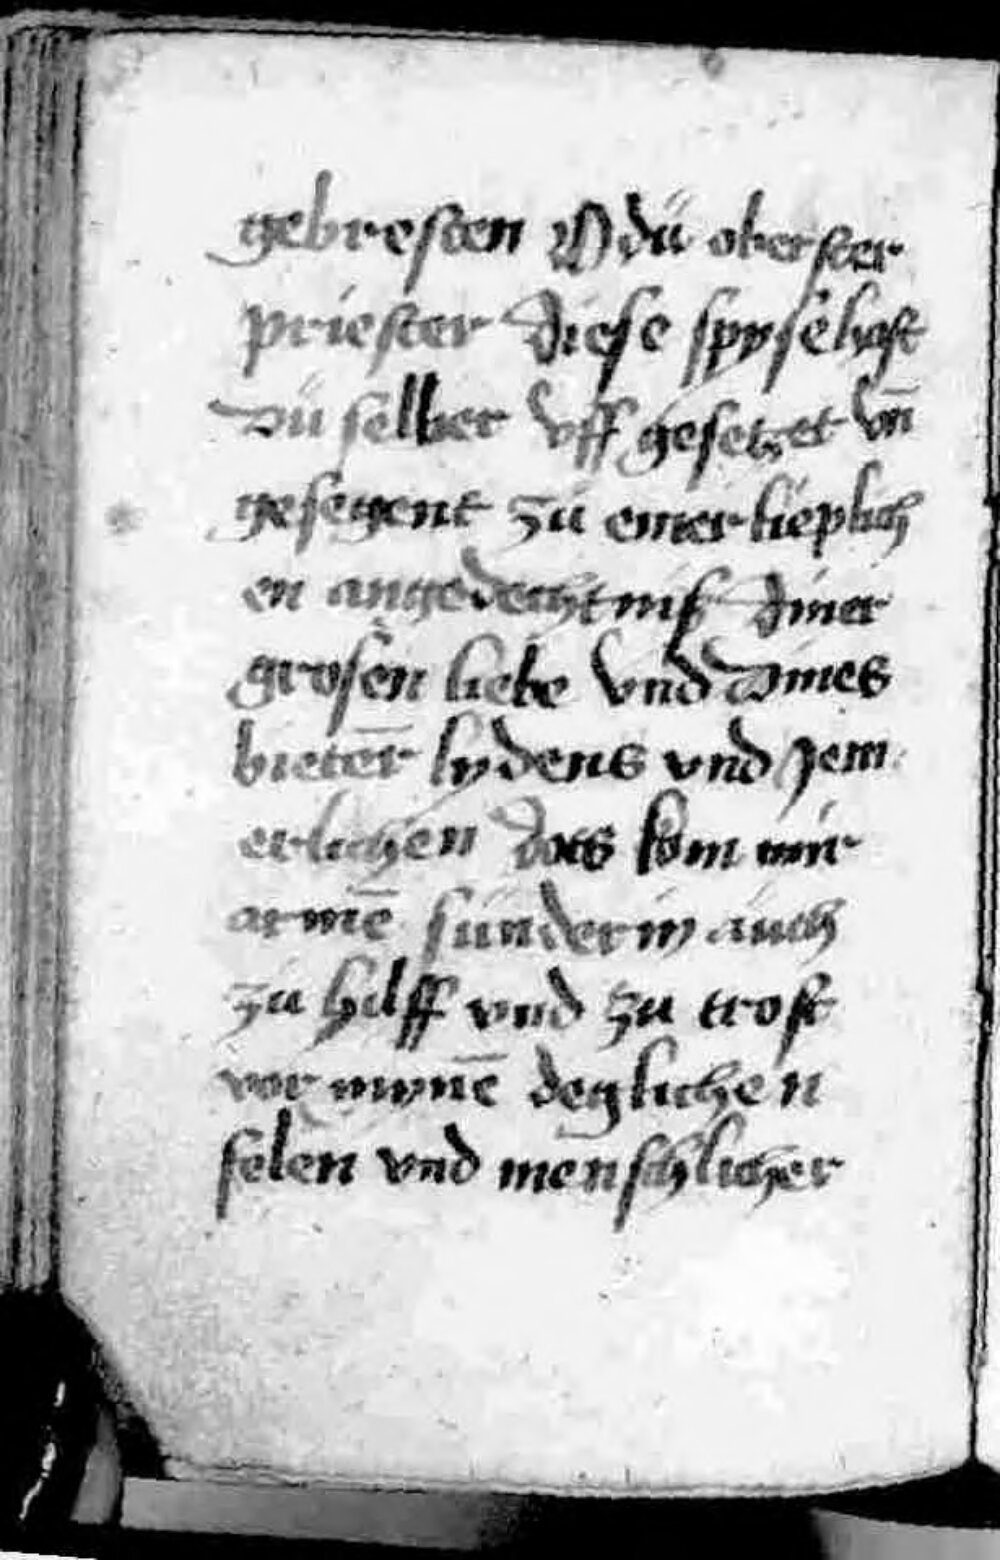 gebresten O dü oberster
priester diese spyse hast
dü selber vff gesetzet vn̄
gesegent zü einer lieplich
en angedechtniß diner
grosen liebe vnd dines
bieter̄ lydens vnd jem
erlichen dots kom mir
armē sünderin auch
zü hilff vnd zu trost
vor mynē deglichen
felen vnd menschlicher